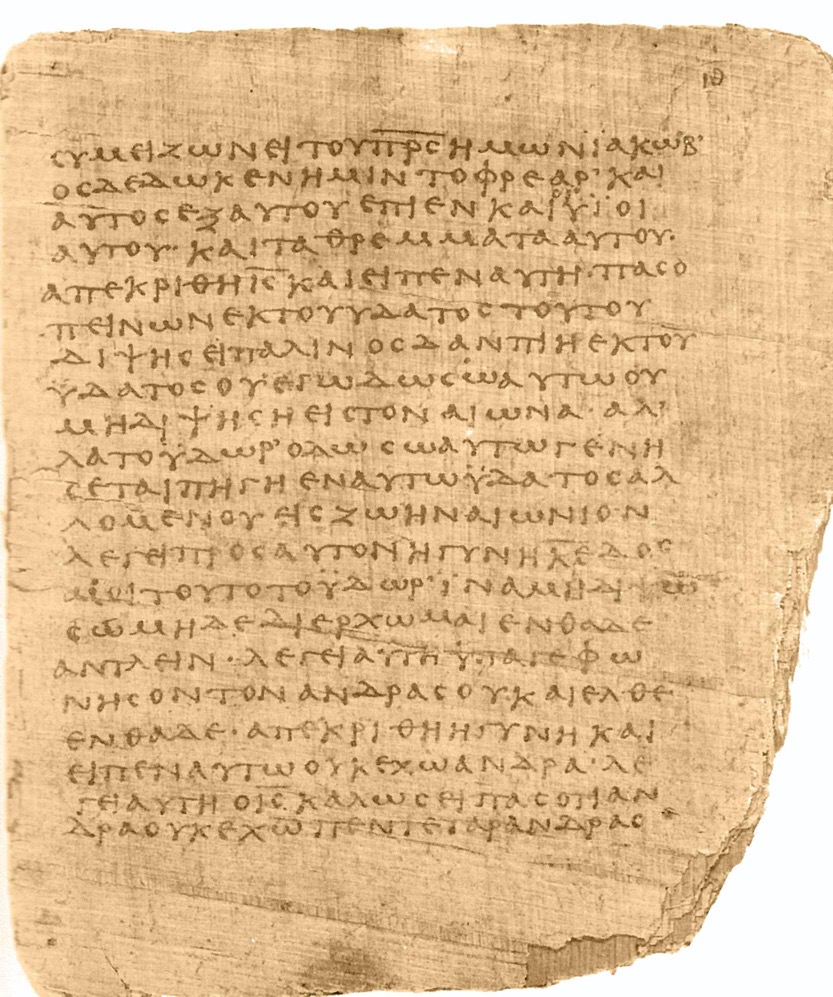 ιθ
ϲυμειζωνειτουπ̅ρ̅ϲ̅ημωνϊακωβ'
οϲδεδωκενημιντοφρεαρ'και
αυτοϲεξαυτουεπιενκαιοιϋϊοι
αυτου·καιταθρεμματααυτου·
απεκριθηι̅ϲ̅καιειπεναυτη·παϲο
πεινωνεκτουυδατοϲτουτου
διψηϲειπαλινοϲδανπιηεκτου
ϋδατοϲουεγωδωϲωαυτωου
μηδιψηϲηειϲτοναιωνα·αλ'
λατοϋδωρ'οδωϲωαυτωγενη
ϲεταιπηγηεναυτωϋδατοϲαλ
λομενουειϲζωηναιωνιον
λεγειπροϲαυτονηγυνηκ̅ε̅δοϲ
μοιτουτοτοϋδωρ'ϊναμηδιψω
ϲωμηδεδιερχωμαιενθαδε
αντλειν·λεγειαυτηϋπαγεφω
νηϲοντονανδραϲουκαιελθε
ενθαδε·απεκριθηηγυνηκαι
ειπεναυτωουκεχωανδρα·λε
γειαυτηοι̅ϲ̅καλωϲειπαϲοτιαν
δραουκεχωπεντεγαρανδραϲ